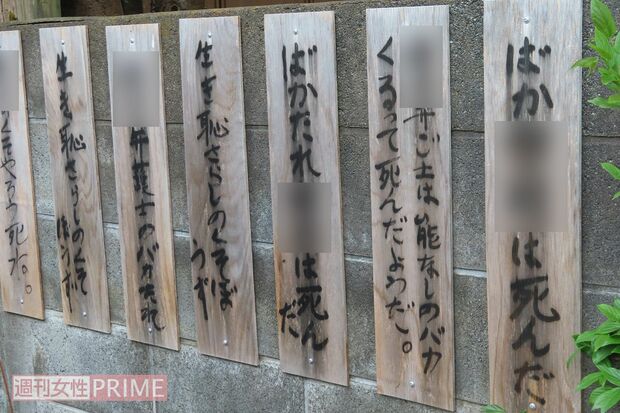 ばか
は死んだ
弁ご士は能なしのバカ
くるって死んだようだ。
ばかたれ
は死ん
だ
生き恥さらしのくそぼ
うず
弁護士のバカたれ
生き恥さらしのくそ
ぼうず
くそやろう死ね。
週刊女性PRIME